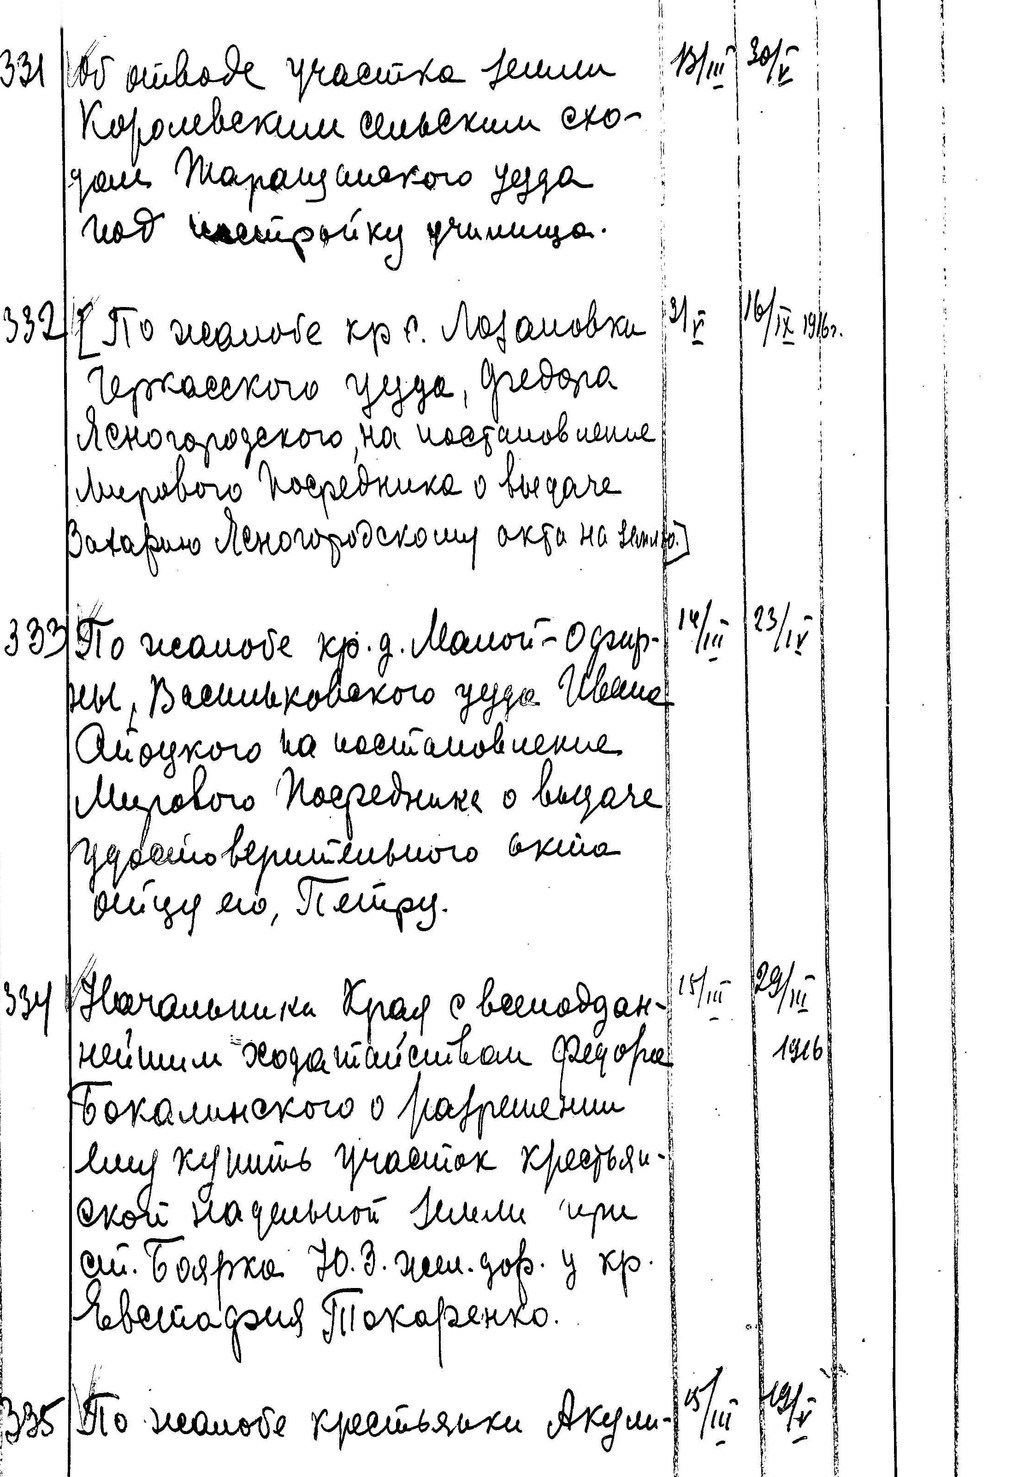 331 Об отводе участка земли 13/III 30/V
Королевским сельским схо-
дом Таращанского уезда
под постройку училища.
332 [По жалобе кр. с. Лозановки 31/V 16/IX 1916г.
Черкасского уезда, Федора
Ясногородского, на постановление
Мирового Посредника о выдаче
Захарию Ясногородскому акта на землю.]
333 По жалобе кр. д. Малой-Офир- 14/III 23/IV
ны, Васильковского уезда Ивана
на постановление
Мирового Посредника о выдаче
удостоверительного акта
отцу его, Петру.
334 Начальника Края с всеподдан- 15/III 29/III
нейшим ходатайством Федора 1916
Бокалинского о разрешении
ему купить участок крестьян-
ской надельной земли при
ст. Боярка Ю.З. жел. дор. у кр.
Евстафия Токаренко.
335 По жалобе крестьянки Акули- 15/III 19/V